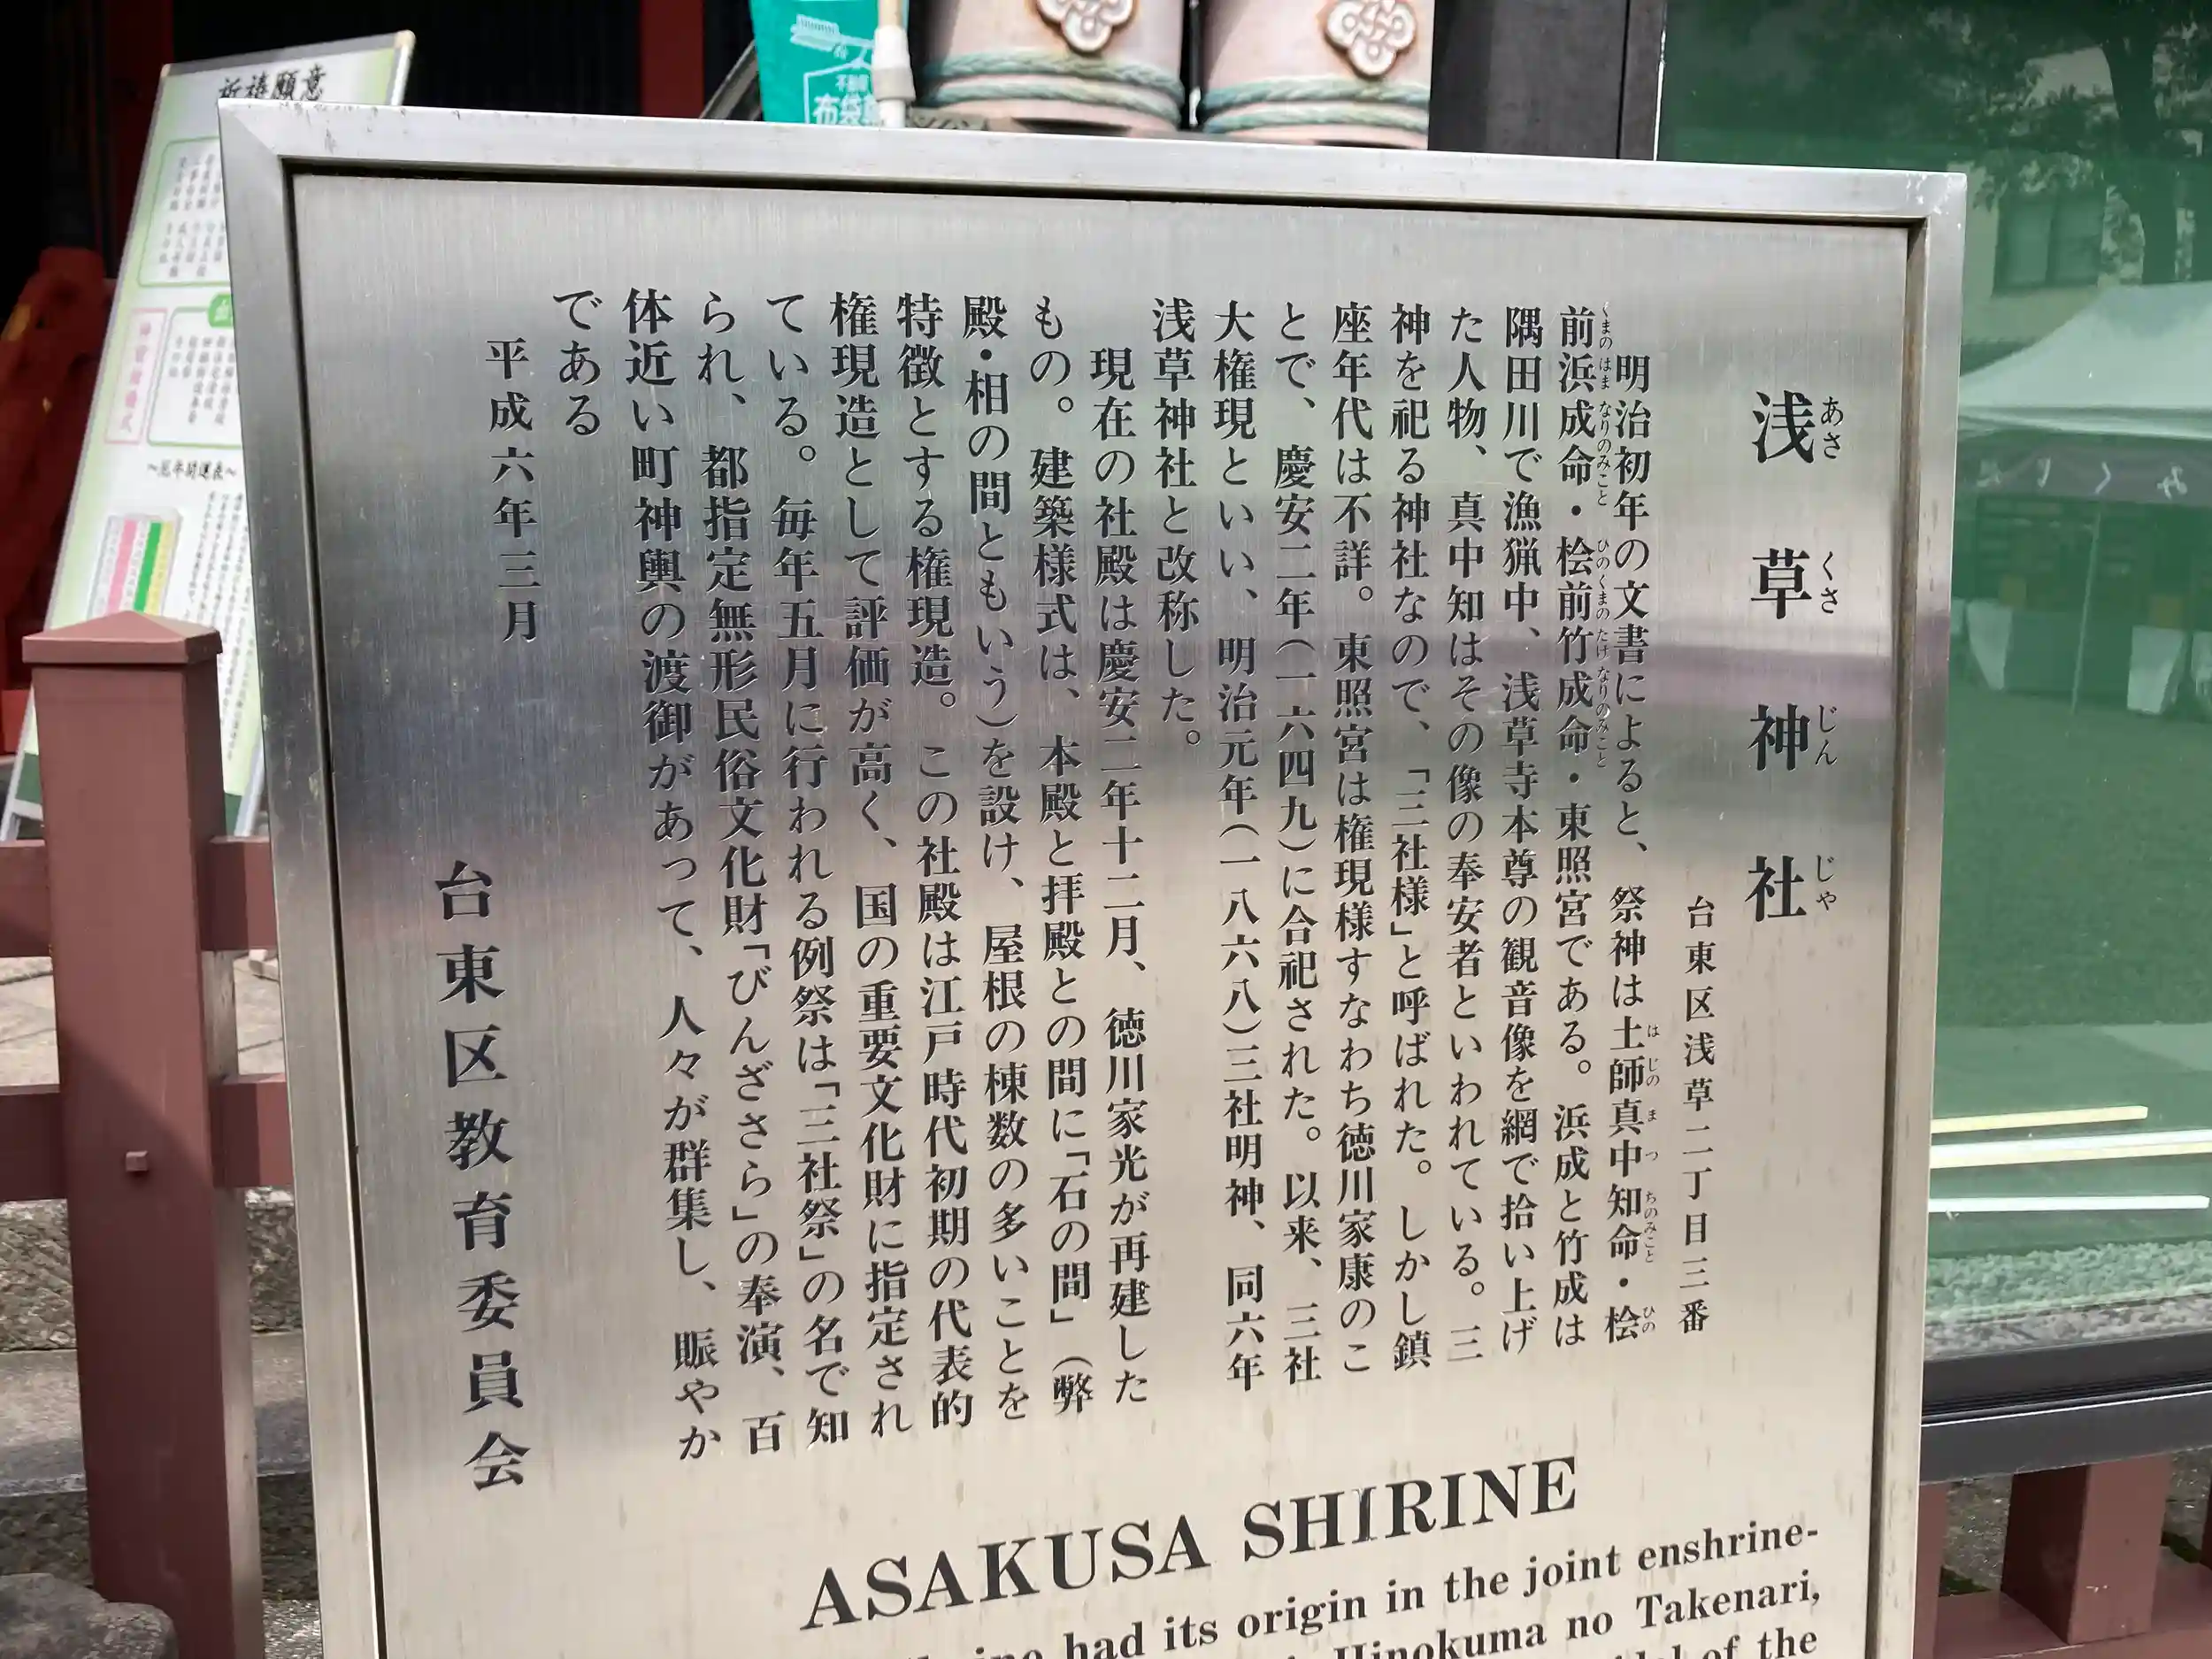 浅草神社
あさくさじんじゃ
台東区浅草二丁目三番
明治初年の文書によると、祭神は土師真中知命・桧
はじのまつちのみこと ひの
前浜成命・桧前竹成命・東照宮である。浜成と竹成は
くまのはまなりのみこと ひのくまのたけなりのみこと
隅田川で漁猟中、浅草寺本尊の観音像を網で拾い上げ
た人物、真中知はその像の奉安者といわれている。三
神を祀る神社なので、「三社様」と呼ばれた。しかし鎮
座年代は不詳。東照宮は権現様すなわち徳川家康のこ
とで、慶安二年(一六四九)に合祀された。以来、三社
大権現といい、明治元年(一八六八)三社明神、同六年
浅草神社と改称した。
現在の社殿は慶安二年十二月、徳川家光が再建した
もの。建築様式は、本殿と拝殿との間に「石の間」(弊
殿・相の間ともいう)を設け、屋根の棟数の多いことを
特徴とする権現造。この社殿は江戸時代初期の代表的
権現造として評価が高く、国の重要文化財に指定され
ている。毎年五月に行われる例祭は「三社祭」の名で知
られ、都指定無形民俗文化財「びんざさら」の奉演、百
体近い町神輿の渡御があって、人々が群集し、賑やか
である
平成六年三月
台東区教育委員会
ASAKUSA SHIRINE
had its origin in the joint enshrine-
Hinokuma no Takenari,
of the
祈祷願意
布袋